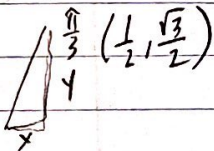 π/3 (1/2, √3/2)
y
x